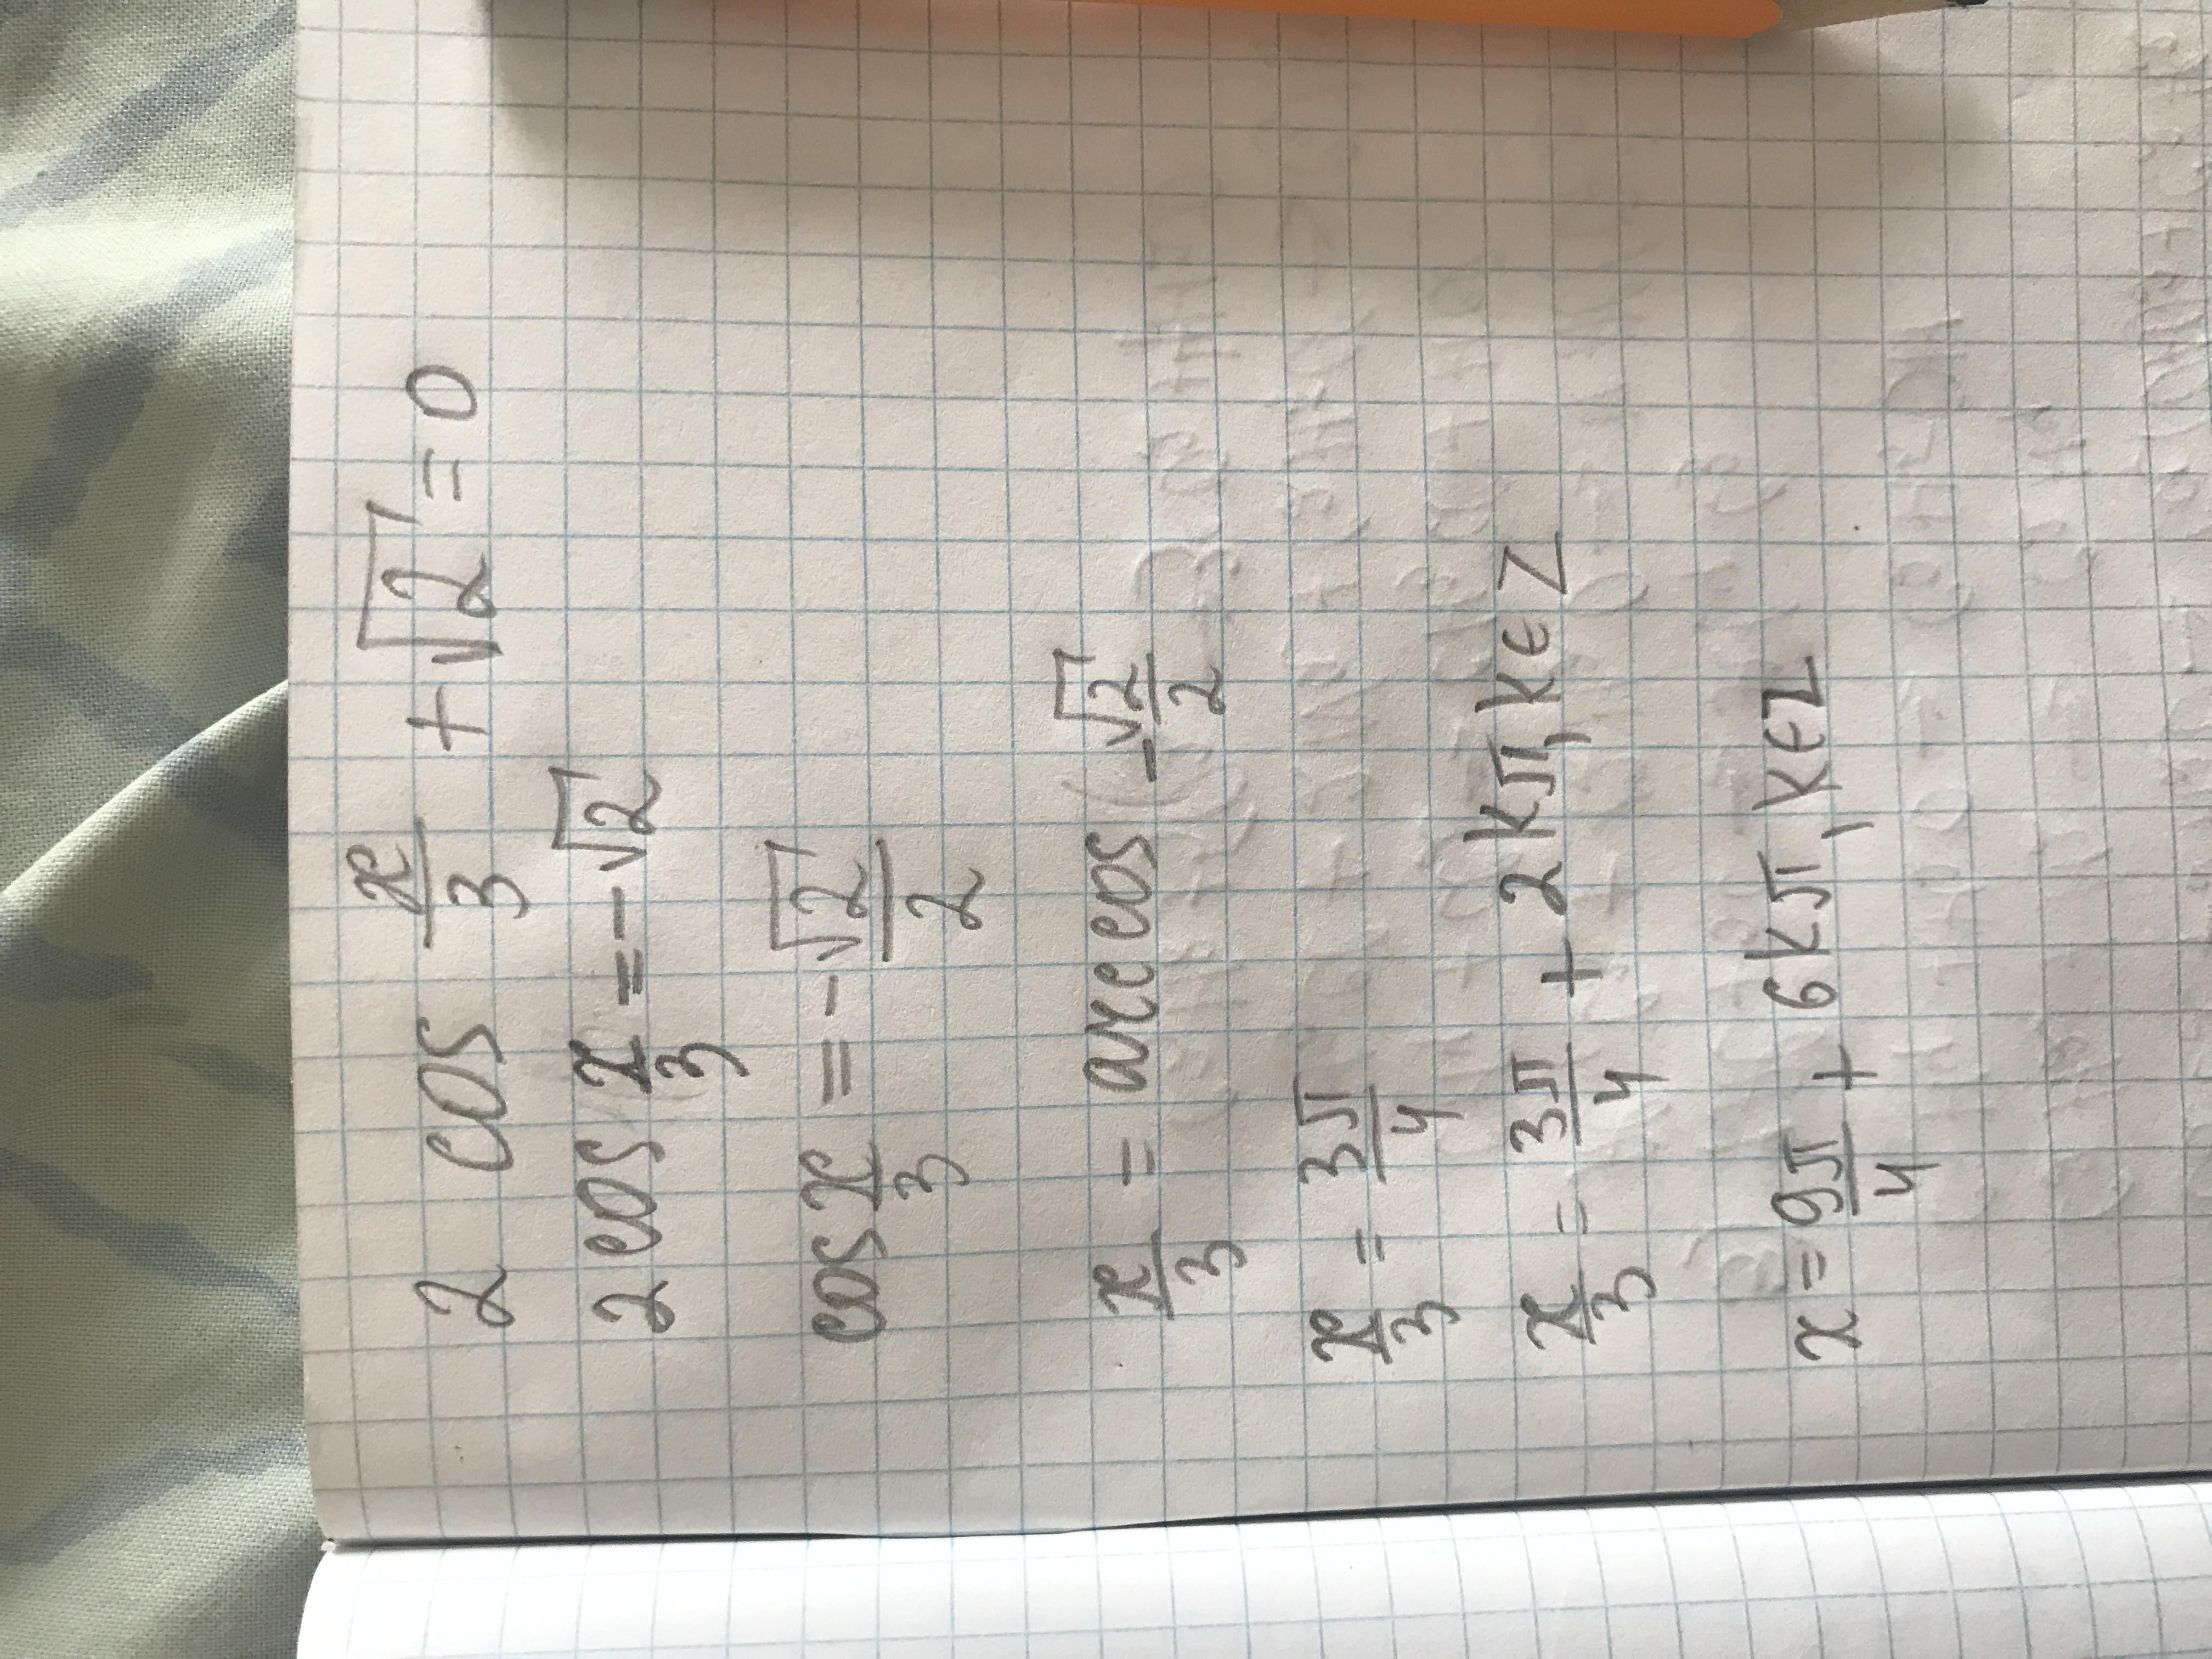 2 cos x/3 + √2 = 0
2 cos x/3 = -√2
cos x/3 = -√2/2
x/3 = arccos -√2/2
x/3 = 3π/4
x/3 = 3π/4 + 2kπ, k∈Z
x = 9π/4 + 6kπ, k∈Z